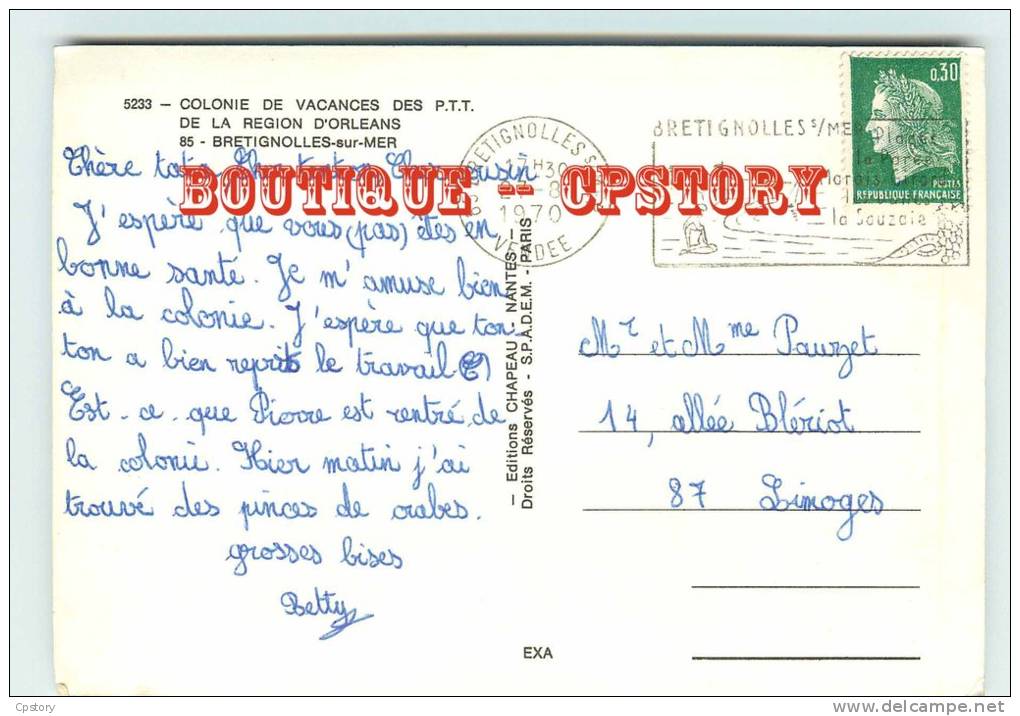 5233 — COLONIE DE VACANCES DES P.T.T.
DE LA REGION D'ORLEANS
85 - BRETIGNOLLES-sur-MER
Chère tata Cher tonton Cher cousin
BOUTIQUE -- CPSTORY
J'espère que vous (pas) êtes en
bonne santé. Je m'amuse bien
à la colonie. J'espère que ton
ton a bien reprit le travail
Est-ce-que Pierre est rentré de
la colonie. Hier matin j'ai
trouvé des pinces de crabes.
grosses bises
Betty
— Editions CHAPEAU - NANTES —
Droits Réservés - S.P.A.D.E.M. - PARIS
85 BRETIGNOLLES S
17H30
-8
1970
VENDEE
BRETIGNOLLES S/MER
la Parée
la Sauzaie
0,30
POSTES
REPUBLIQUE FRANÇAISE
Mr et Mme Pauzet
14, allée Blériot
87 Limoges
EXA
Cpstory